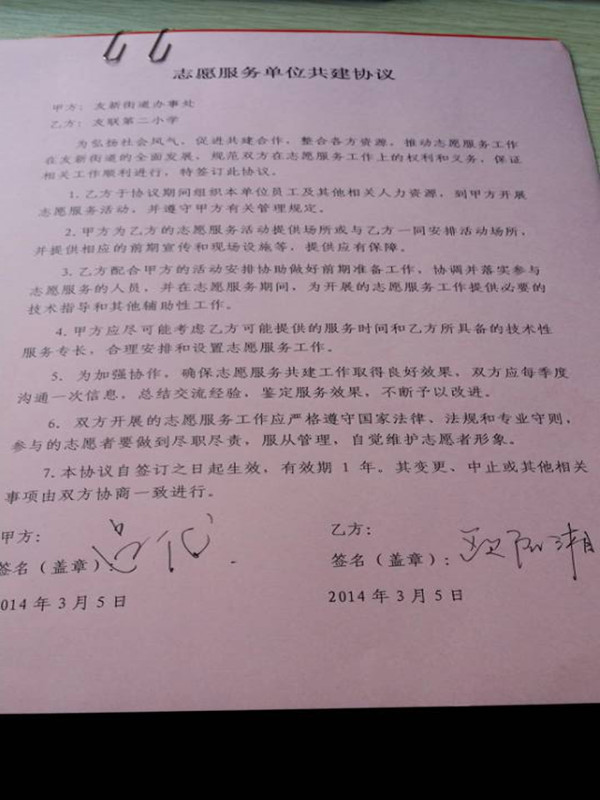 志愿服务单位共建协议
甲方：友新街道办事处
乙方：友联第二小学
为弘扬社会风气，促进共建合作，整合各方资源，推动志愿服务工作
在友新街道的全面发展，规范双方在志愿服务工作上的权利和义务，保证
相关工作顺利进行，特签订此协议。
1.乙方于协议期间组织本单位员工及其他相关人力资源，到甲方开展
志愿服务活动，并遵守甲方有关管理规定。
2.甲方为乙方的志愿服务活动提供场所或与乙方一同安排活动场所，
并提供相应的前期宣传和现场设施等，提供应有保障。
3.乙方配合甲方的活动安排协助做好前期准备工作，协调并落实参与
志愿服务的人员，并在志愿服务期间，为开展的志愿服务工作提供必要的
技术指导和其他辅助性工作。
4.甲方应尽可能考虑乙方可能提供的服务时间和乙方所具备的技术性
服务专长，合理安排和设置志愿服务工作。
5. 为加强协作，确保志愿服务共建工作取得良好效果，双方应每季度
沟通一次信息，总结交流经验，鉴定服务效果，不断予以改进。
6. 双方开展的志愿服务工作应严格遵守国家法律、法规和专业守则，
参与的志愿者要做到尽职尽责，服从管理，自觉维护志愿者形象。
7.本协议自签订之日起生效，有效期 1 年。其变更、中止或其他相关
事项由双方协商一致进行。
甲方：
签名（盖章）：
014 年 3 月 5 日
乙方：
签名（盖章）：
2014 年 3 月 5 日